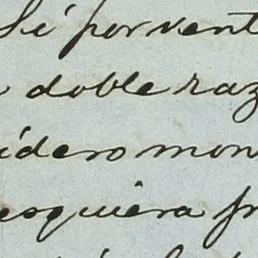 Si por vent
doble raz
ídero mon
esquiera fr